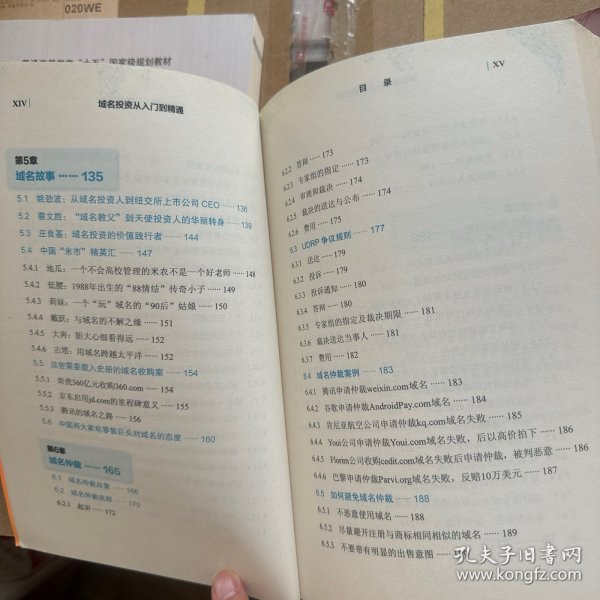 020WE
普通高等教育“十五”国家级规划教材
XIV
域名投资从入门到精通
第5章
域名故事 …… 135
5.1 姚劲波：从域名投资人到纽交所上市公司CEO …… 136
5.2 蔡文胜：“域名教父”到天使投资人的华丽转身 …… 139
5.3 庄良基：域名投资的价值践行者 …… 144
5.4 中国“米市”精英汇 …… 147
5.4.1 地瓜：一个不会高校管理的米农不是一个好老师 …… 148
5.4.2 低腰：1988年出生的“88情结”传奇小子 …… 149
5.4.3 莉妹：一个“玩”域名的“90后”姑娘 …… 150
5.4.4 戴跃：与域名的不解之缘 …… 151
5.4.5 大奔：胆大心细看得远 …… 152
5.4.6 古塔：用域名跨越太平洋 …… 152
5.5 这些需要载入史册的域名收购案 …… 154
5.5.1 奇虎360亿元收购360.com …… 154
5.5.2 京东启用jd.com的里程碑意义 …… 155
5.5.3 腾讯的域名之路 …… 156
5.6 中国两大家电零售巨头对域名的态度 …… 160
第6章
域名仲裁 …… 165
6.1 域名仲裁政策 …… 166
6.2 域名仲裁流程 …… 170
6.2.1 起诉 …… 172
目 录
XV
6.2.2 答辩 …… 173
6.2.3 专家组的指定 …… 173
6.2.4 审理和裁决 …… 174
6.2.5 裁决的送达与公布 …… 174
6.2.6 费用 …… 175
6.3 UDRP争议规则 …… 177
6.3.1 送达 …… 179
6.3.2 投诉 …… 179
6.3.3 投诉通知 …… 180
6.3.4 答辩 …… 180
6.3.5 专家组的指定及裁决期限 …… 181
6.3.6 裁决送达当事人 …… 181
6.3.7 费用 …… 182
6.4 域名仲裁案例 …… 183
6.4.1 腾讯申请仲裁weixin.com域名 …… 183
6.4.2 谷歌申请仲裁AndroidPay.com域名 …… 184
6.4.3 肯尼亚航空公司申请仲裁kq.com域名失败 …… 185
6.4.4 Youi公司申请仲裁Youi.com域名失败，后以高价拍下 …… 186
6.4.5 Florim公司收购cedit.com域名失败后申请仲裁，被判恶意 …… 186
6.4.6 巴黎申请仲裁Parvi.org域名失败，反赔10万美元 …… 187
6.5 如何避免域名仲裁 …… 188
6.5.1 不恶意使用域名 …… 188
6.5.2 尽量避开注册与商标相同相似的域名 …… 189
6.5.3 不要带有明显的出售意图 ……
孔夫子旧书网
www.kongfz.com